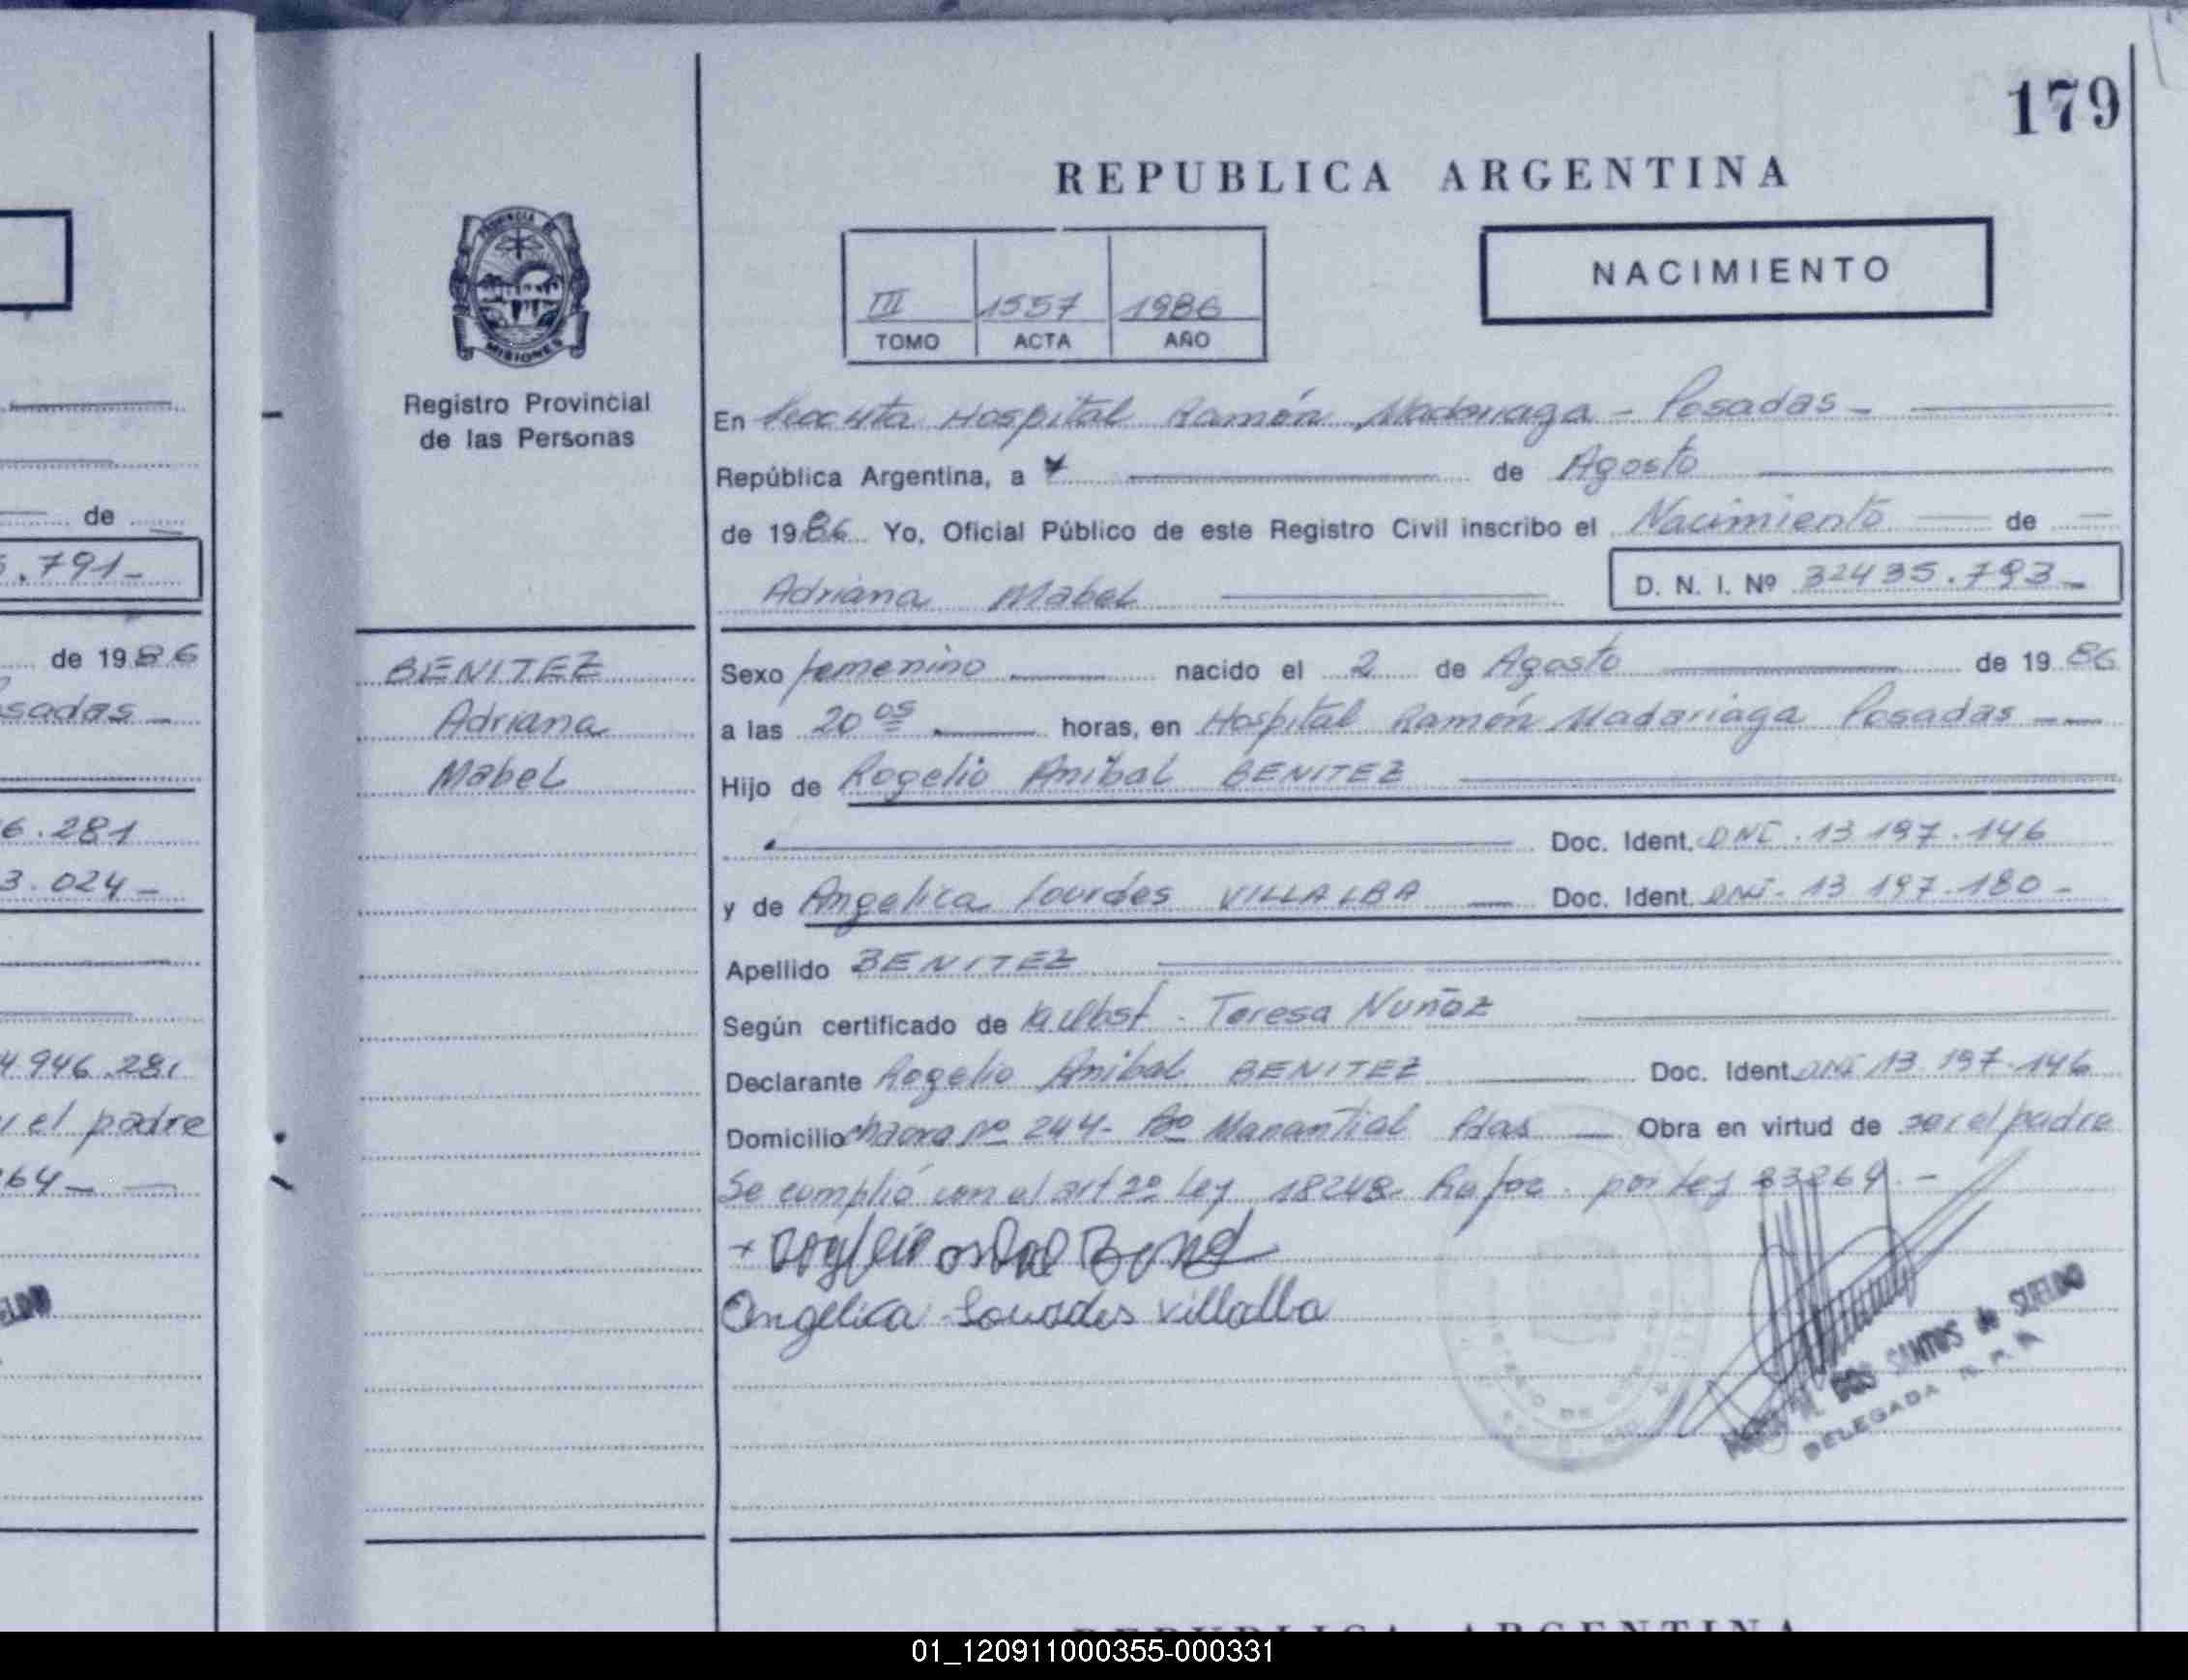 179
REPUBLICA ARGENTINA
NACIMIENTO
III 1557 1986
TOMO ACTA AÑO
PROVINCIA DE
MISIONES
Registro Provincial
de las Personas
En Hospital Ramón Madariaga - Posadas -
República Argentina, a de Agosto
de 1986 Yo, Oficial Público de este Registro Civil inscribo el Nacimiento de
Adriana Mabel D. N. I. Nº 32435.793-
BENITEZ
Adriana
Mabel
Sexo femenino nacido el 2 de Agosto de 1986
a las 20 05 horas, en Hospital Ramón Madariaga Posadas
Hijo de Rogelio Anibal BENITEZ
Doc. Ident. DNI. 13.197.146
y de Angelica Lourdes VILLALBA Doc. Ident. DNI. 13.197.180-
Apellido BENITEZ
Según certificado de la Obst. Teresa Nuñez
Declarante Rogelio Anibal BENITEZ Doc. Ident. DNI 13.197.146
Domicilio chacra Nº 244- Bº Manantial Pdas Obra en virtud de ser el padre
Se cumplió con el art 2º Ley 18248. por Ley 23264.-
Angelica Lourdes Villalba
DOS SANTOS de SUELDO
DELEGADA R. P. P.
de
.791-
de 1986
sadas
6.281
3.024-
4946.281
el padre
64-
REPUBLICA ARGENTINA
01_120911000355-000331